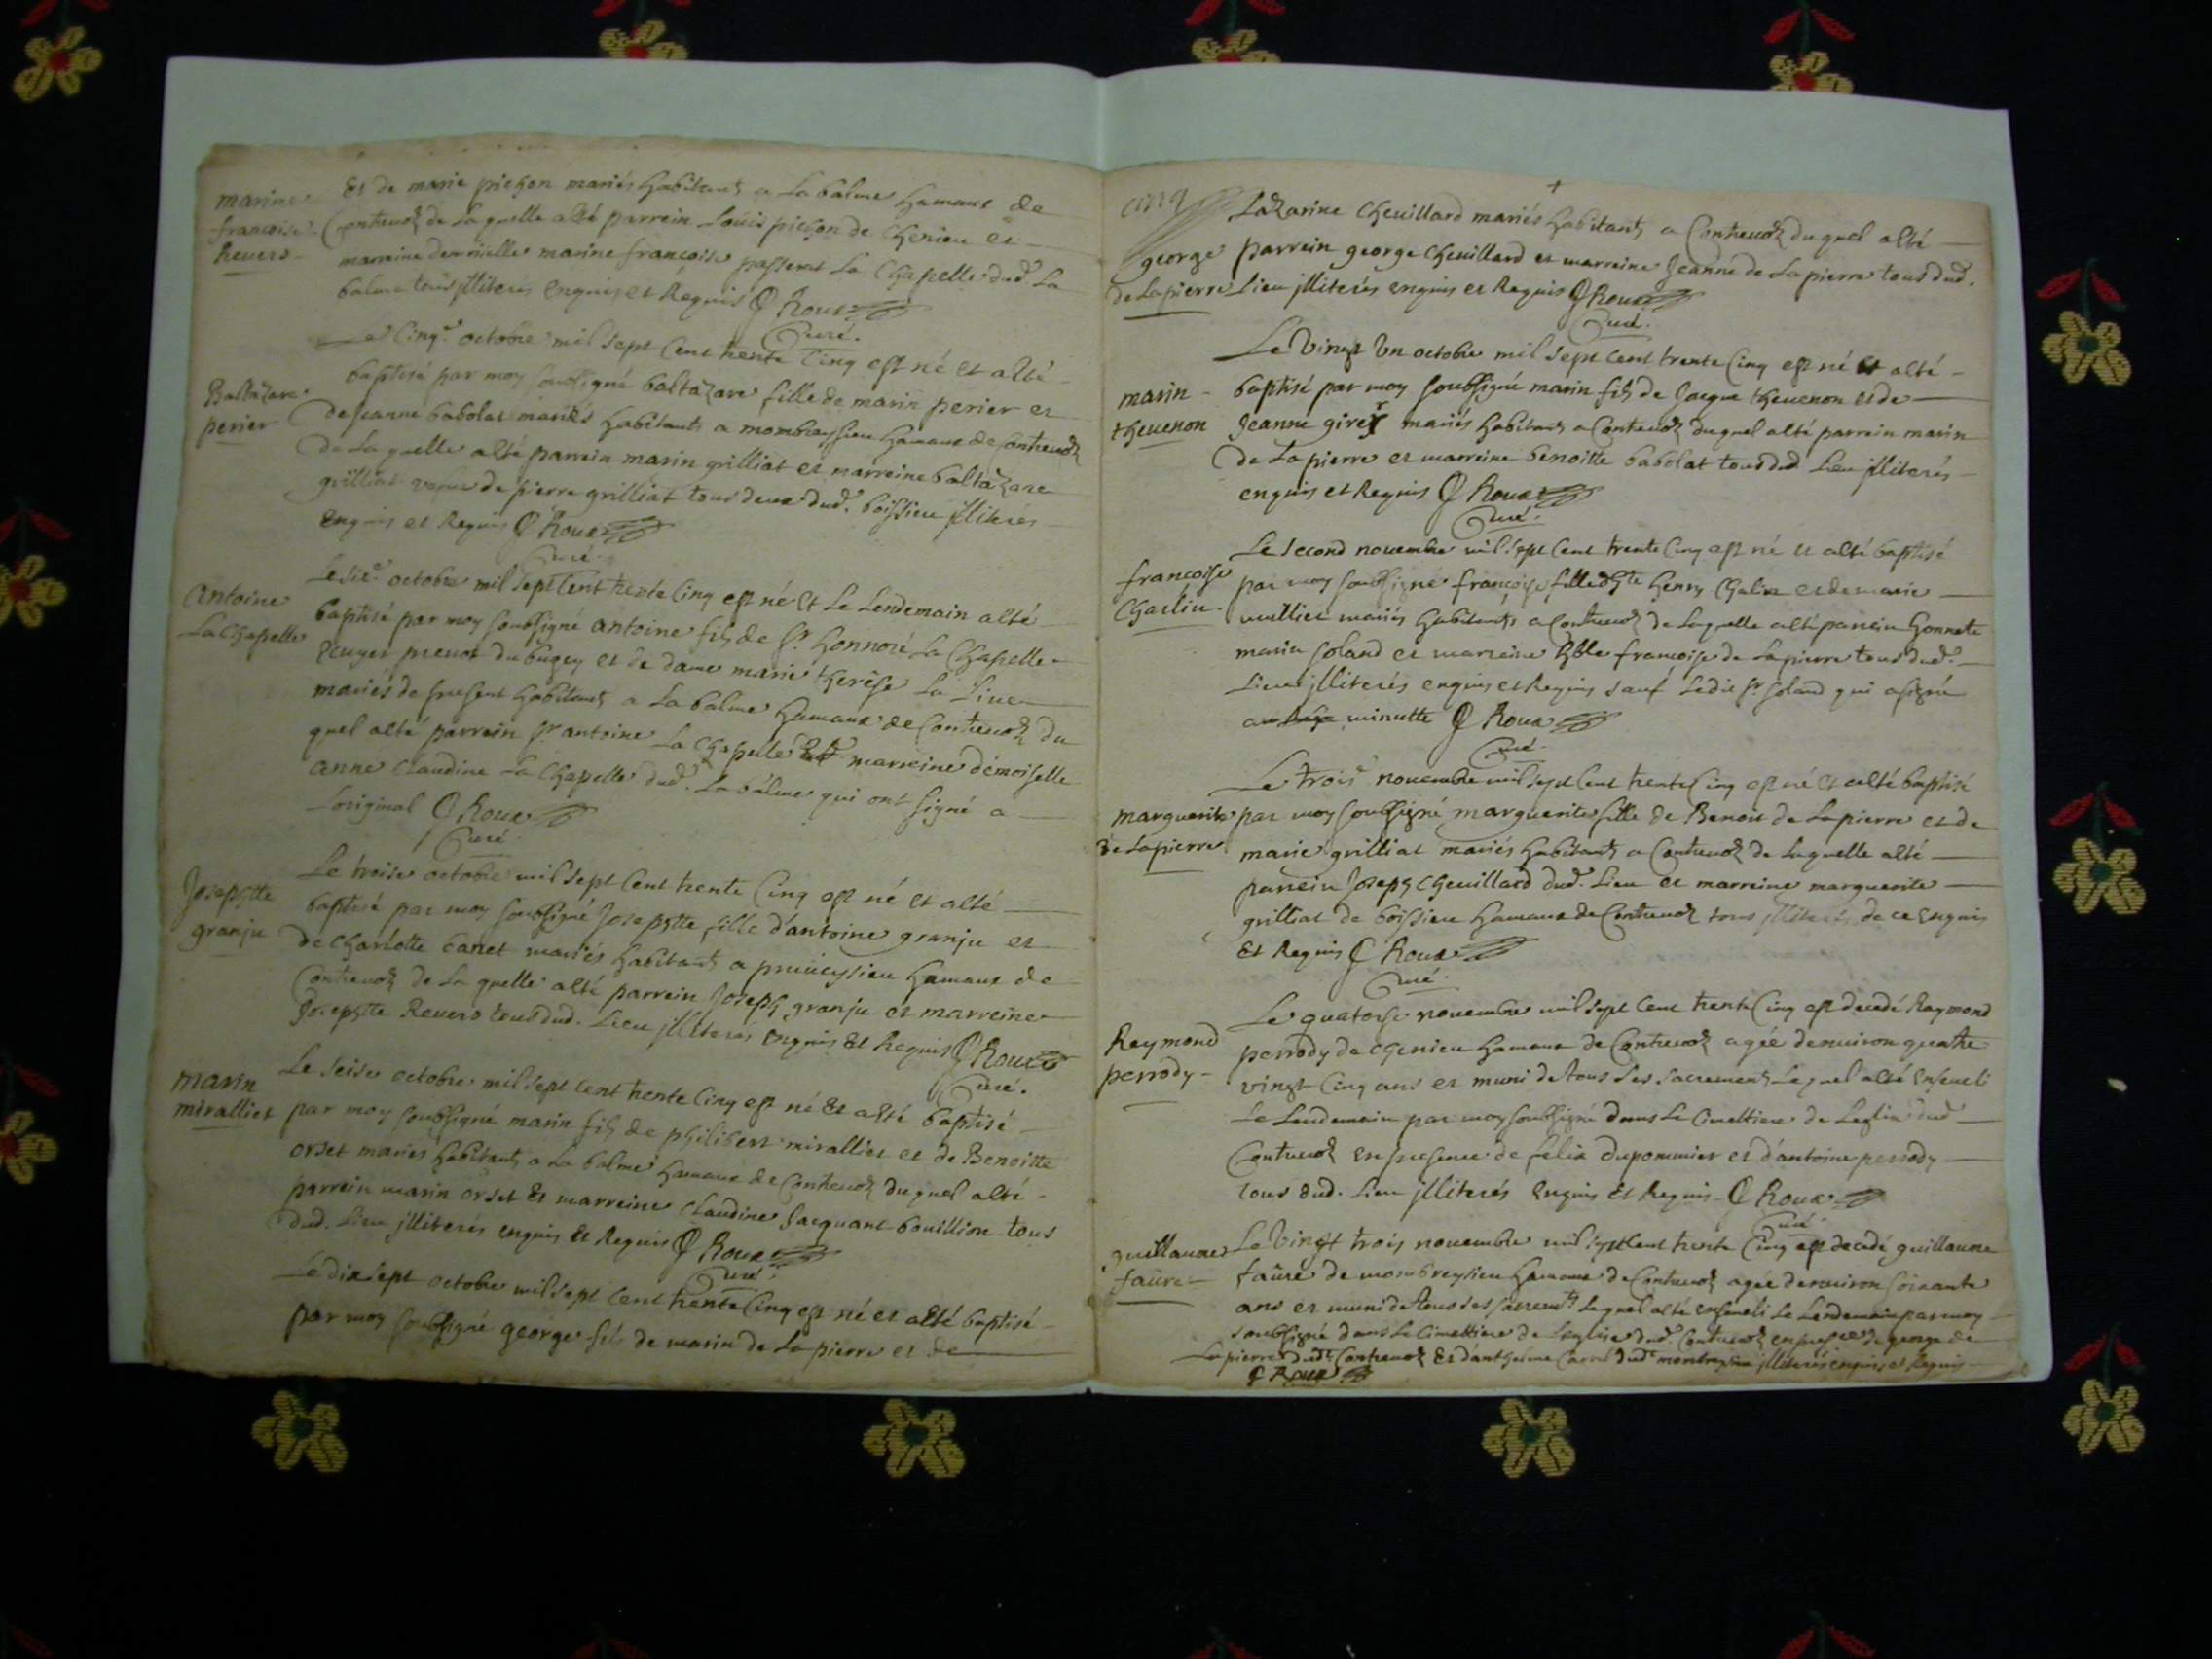 marine
françoise
Revers
Et de marie pichon mariés habitants a La balme hamaux de
Contrevoz de La quelle a été parrein Louis pichon de Chenieu et
marreine demoiselle marine françoise passerat La Chapelle dud. La
balme tous jlliterés enquis et Requis Roux
Curé.
Baltazare
perier
Le Cinqe octobre mil sept cent trente Cinq est né et a eté
baptisé par moy soubsigné baltazare fille de marin perier et
de jeanne babolat mariés habitants a mombreysieu hamaux de Contrevoz
de La quelle a eté parrein marin grilliat et marreine baltazare
grilliat vefve de pierre grilliat tous deux dud. boissieu jlliterés
enquis et Requis Roux
Curé.
Antoine
La Chapelle
Le sie octobre mil sept Cent trente Cinq est né Et Le Lendemain a eté
baptisé par moy soubsigné antoine fils de Sr. honnoré La Chapelle
Ecuyer prevot du bugey et de dame marie therese La Live
mariés de present habitants a La balme hamaux de Contrevoz du
quel a eté parrein Sr antoine La Chapelle marreine demoiselle
anne Claudine La Chapelle dud. La balme qui ont signé a
Loriginal Roux
Curé
Josephtte
granju
Le treise octobre mil sept Cent trente Cinq est né et a eté
baptisé par moy soubsigné Josephtte fille d'antoine granju et
de Charlotte Canet mariés habitants a preveysieu hamaux de
Contrevoz de La quelle a eté parrein Joseph granju et marreine
Josephtte Revers tous dud. Lieu jlliterés enquis Et Requis Roux
Curé.
marin
miralliet
Le seise octobre mil sept cent trente Cinq est né Et a eté baptisé
par moy soubsigné marin fils de philibert miralliet et de Benoitte
orset mariés habitants a La balme hamaux de Contrevoz du quel a eté
parrein marin orset Et marreine Claudine Jacquant bouillion tous
dud. Lieu jlliterés enquis Et Requis Roux
Curé.
Le dix sept octobre mil sept Cent trente Cinq est né et a eté baptisé
par moy soubsigné george fils de marin de La pierre et de
cinq
george
de Lapierre
Lazarine Chevillard mariés habitants a Contrevoz du quel a eté
parrein george Chevillard et marreine Jeanne de La pierre tous dud.
Lieu jlliterés enquis et Requis Roux
Curé.
marin
thevenon
Le Vingt Un octobre mil sept cent trente Cinq est né et a eté
baptisé par moy soubsigné marin fils de Jacque thevenon et de
Jeanne girer mariés habitants a Contrevoz du quel a eté parrein marin
de La pierre et marreine benoitte babolat tous dud Lieu jlliterés
enquis et Requis Roux
Curé.
françoise
Charlin
Le second novembre mil sept Cent trente Cinq est né et a eté baptisé
par moy soubsigné françoise fille d'hte henry Chalin et de marie
vullier mariés habitants a Contrevoz de La quelle a eté parrein honnete
marin Goland et marreine hble françoise de La pierre tous dud.
Lieu jlliterés enquis et Requis sauf Ledit Sr Goland qui a signé
a minutte Roux
Curé.
marguerite
de Lapierre
Le trois novembre mil sept Cent trente Cinq est né et a eté baptisé
par moy soubsigné marguerite fille de Benoit de La pierre et de
marie grilliat mariés habitants a Contrevoz de La quelle a eté
parrein Joseph Chevillard dud. Lieu et marreine marguerite
grilliat de boissieu hamaux de Contrevoz tous jlliterés de ce enquis
Et Requis Roux
Curé.
Raymond
perrody
Le quatorse novembre mil sept Cent trente Cinq est decedé Raymond
perrody de Chenieu hamaux de Contrevoz agée denviron quatre
vingt Cinq ans et muni de tous ses sacrements Lequel a eté enseveli
Le Lendemain par moy soubsigné dans Le Cimettiere de Leglise dud
Contrevoz en presence de felix dupommier et d'antoine perrody
tous dud. Lieu jlliterés enquis Et Requis Roux
Curé.
guillaume
faure
Le Vingt trois novembre mil sept Cent trente Cinq est decedé guillaume
faure de mombreysieu hamaux de Contrevoz agée denviron soixante
ans et muni de tous ses sacremts Lequel a eté enseveli Le Lendemain par moy
soubsigné dans Le Cimettiere de Leglise dud. Contrevoz en presce de george de
La pierre dudt Contrevoz Et d'anthelme Carré dudt mombreysieu jlliterés enquis et Requis
Roux